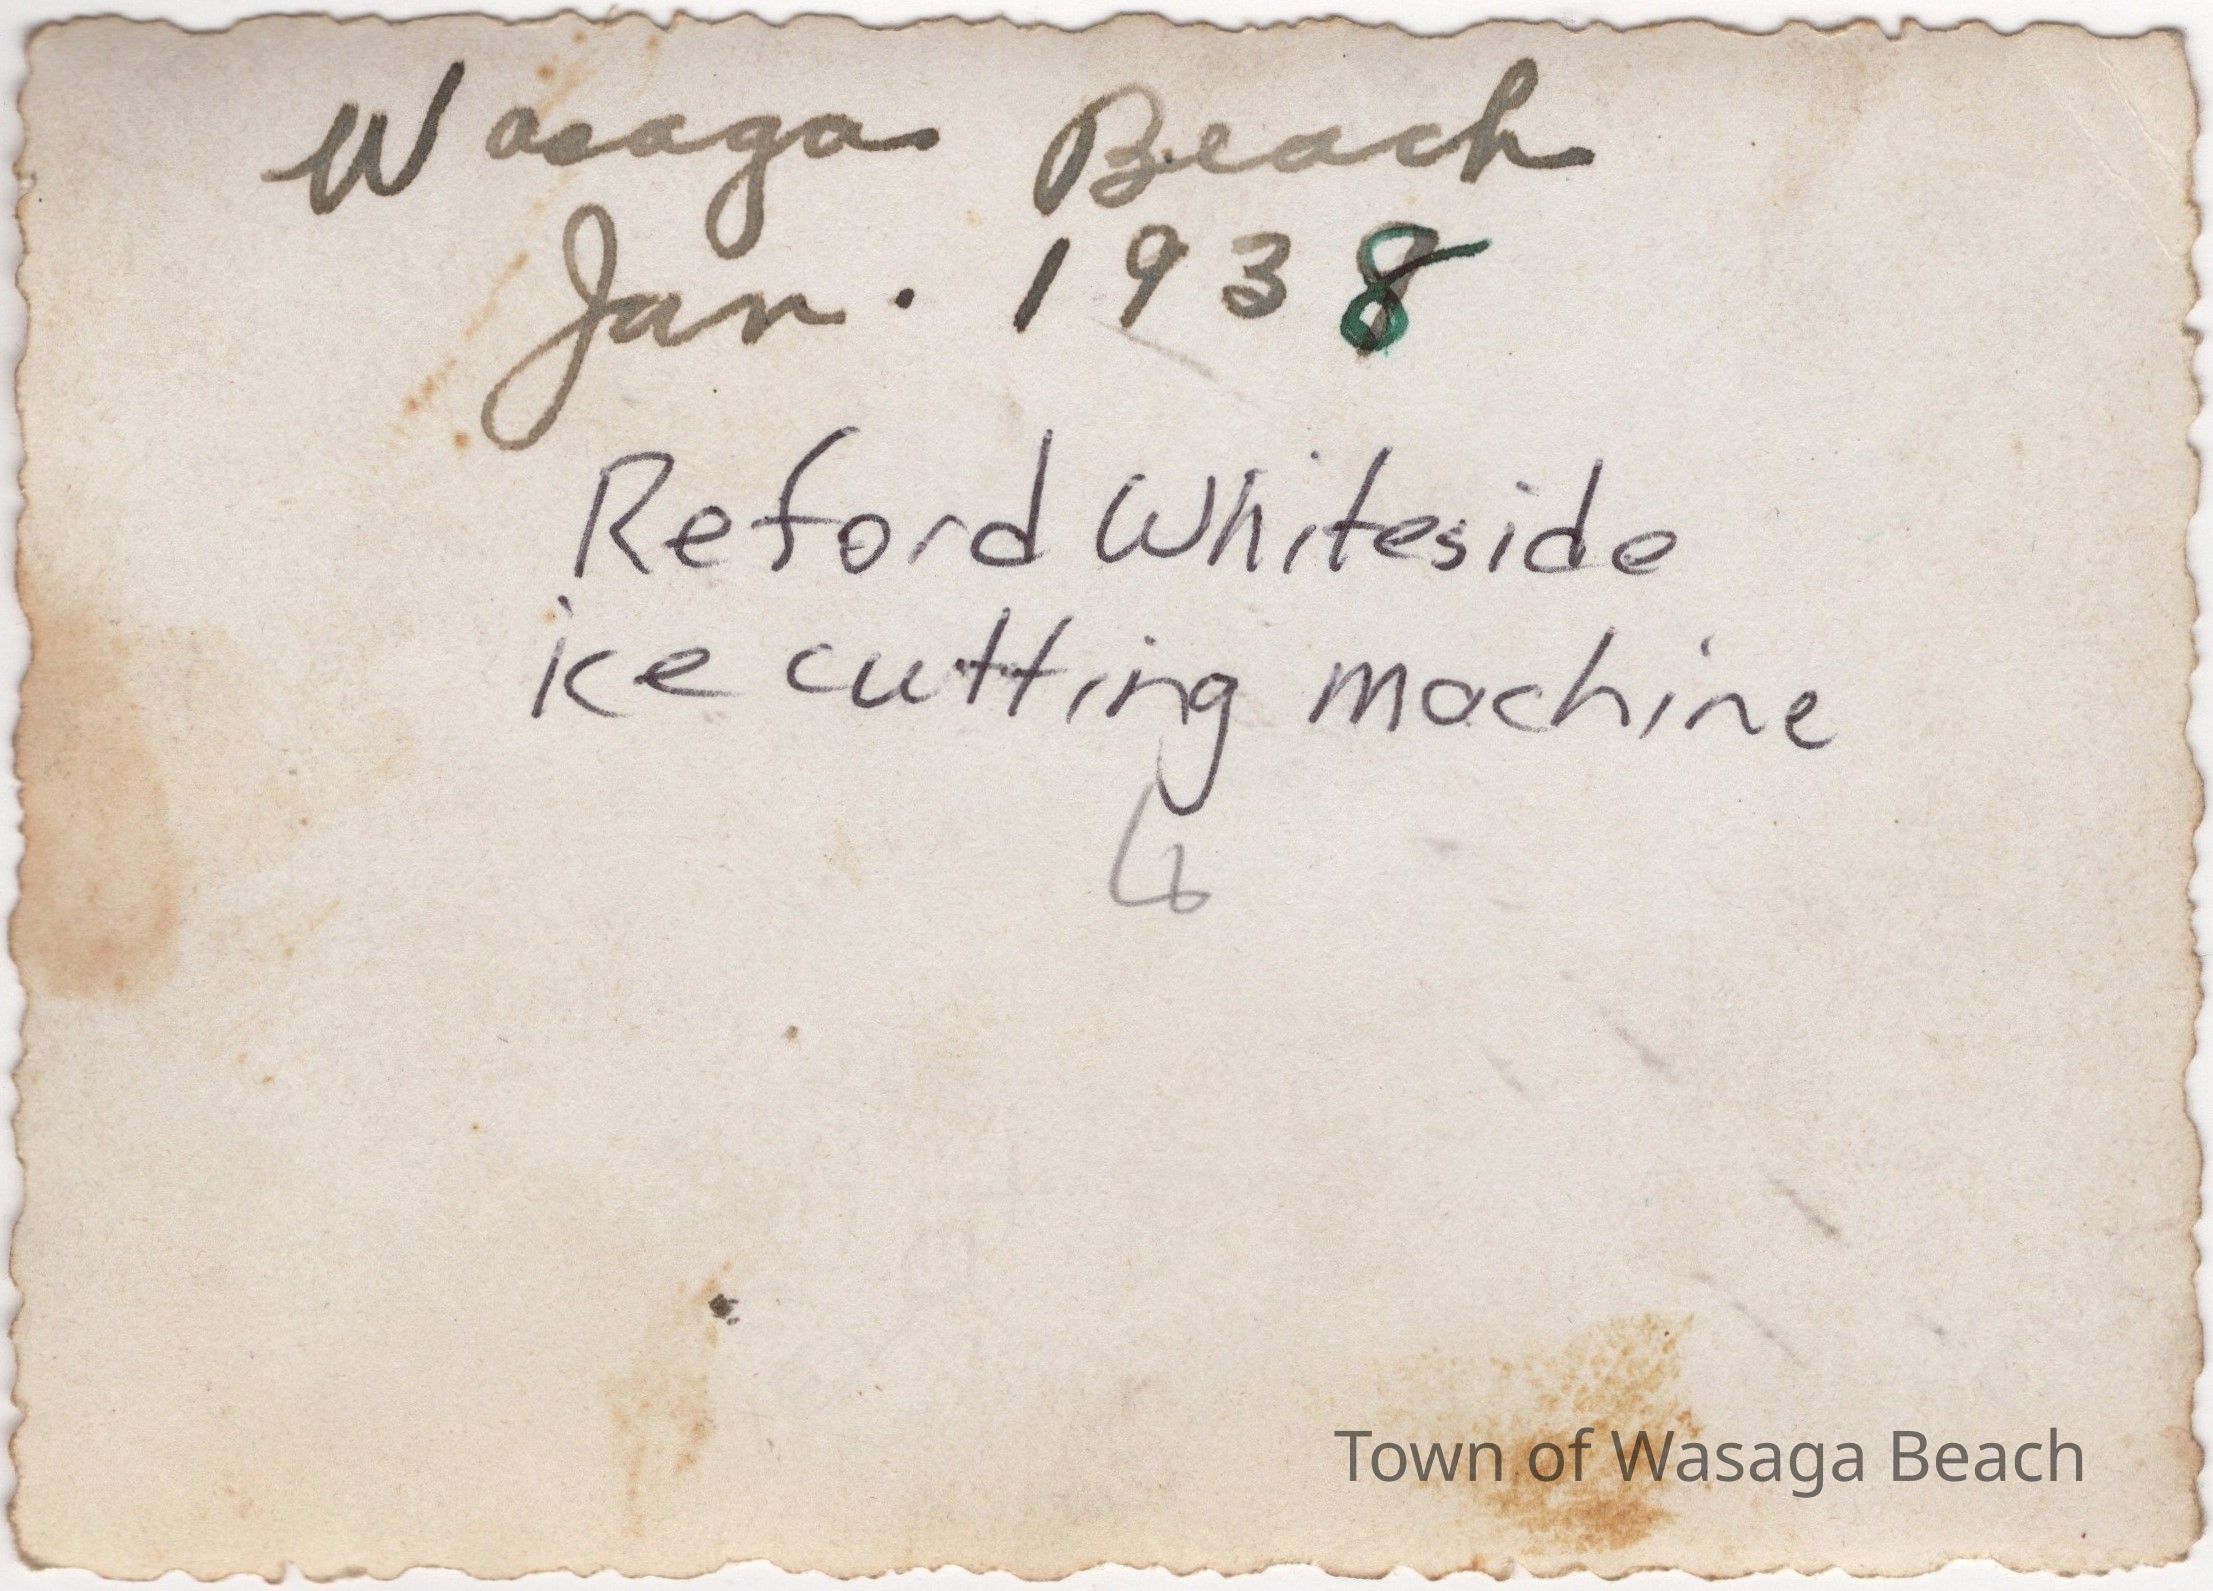 Wasaga Beach
Jan. 1938
Reford Whiteside
ice cutting machine
Town of Wasaga Beach